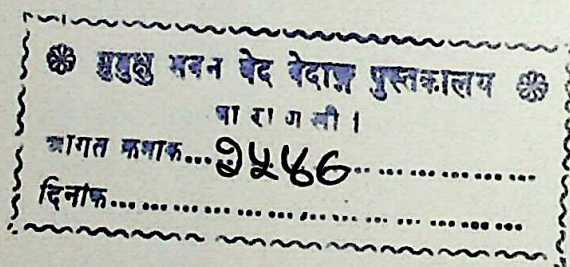 ❀ मुमुक्षु भवन वेद वेदाङ्ग पुस्तकालय ❀
वा रा ण सी ।
आगत क्रमाक...१५४७...............
दिनांक.................................